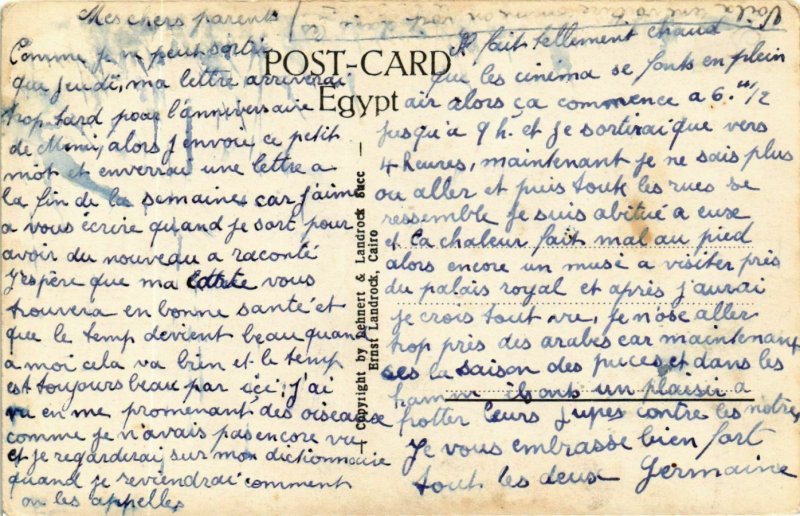 Mes chers parents
Comme je ne peut sortir
que jeudi, ma lettre arriverai
trop tard pour l'anniversaire
de Mimi, alors j'envoie ce petit
mot et enverrai une lettre a
la fin de la semaine, car j'aime
a vous écrire quand je sort pour
avoir du nouveau a raconté
J'espère que ma carte vous
trouvera en bonne santé et
que le temp devient beau quand
a moi cela va bien et le temp
est toujours beau par ici; j'ai
vu en me promenant, des oiseause
comme je n'avais pas encore vu
et je regarderai sur mon dictionnaire
quand je reviendrai comment
on les appelles
POST-CARD
Egypt
Copyright by Lehnert & Landrock Succ
Ernst Landrock, Cairo
Voila
Il fait tellement chaud
que les cinéma se fonts en plein
air alors ça commence a 6.h 1/2
jusqu'a 9 h. et je sortirai que vers
4 heures, maintenant je ne sais plus
ou aller et puis toute les rues se
ressemble je suis abitué a euse
et la chaleur fait mal au pied
alors encore un musé a visiter près
du palais royal et après j'aurai
je crois tout vue, je n'ose aller
trop près des arabes car maintenant
ses la saison des puces et dans les
ils onts un plaisir a
frotter leurs jupes contre les notres
Je vous embrasse bien fort
tout les deuse Germaine